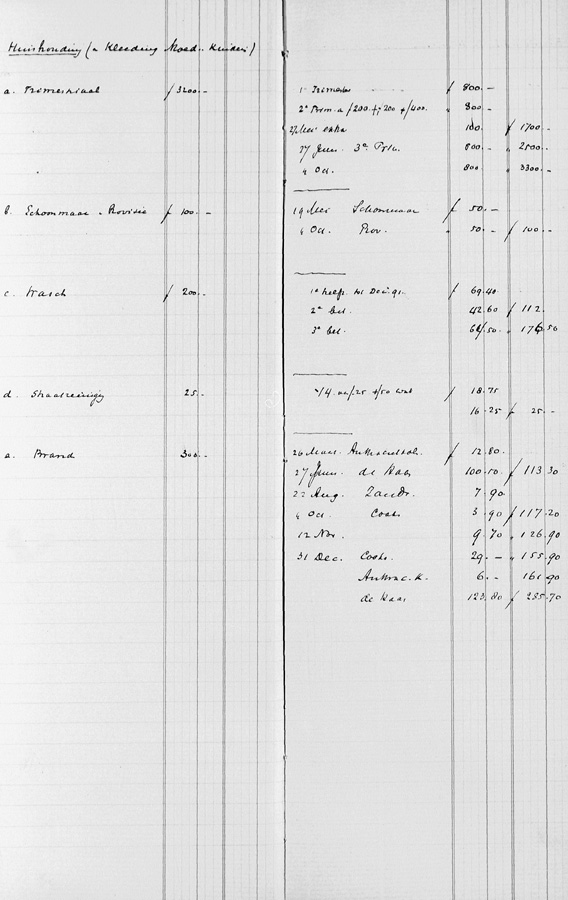 Huishouding (en Kleeding Moed.. Kinderen)
a. Trimestriaal f 3200.-
1e Trimester f 800.-
2e Trim. a f 200 + f 200 + f 400. " 800.-
27 Mei extra 100. f 1700.-
27 Juni. 3e Trim. 800.- " 2500.-
" Oct. 800. " 3300.-
b. Schoonmaak en Provisie f 100.-
19 Mei Schoonmaak f 50.-
" Oct. Prov. " 50.- f 100.-
c. Wasch f 200.-
1e f 69.40
2e 42.60 f 112.
3e 64.50 " 176.50
d. 25.-
f 18.75
16.25 f 25.-
a. Brand 300.-
26 Maart f 12.80.
27 Juni. de Haas 100.50. f 113.30
22 Aug. 7.90
" Oct. Cooks 3.90 f 117.20
12 Nov. 9.70 " 126.90
31 Dec. Cooks. 29.- " 155.90
6.- 161.90
de Haas 123.80 f 285.70